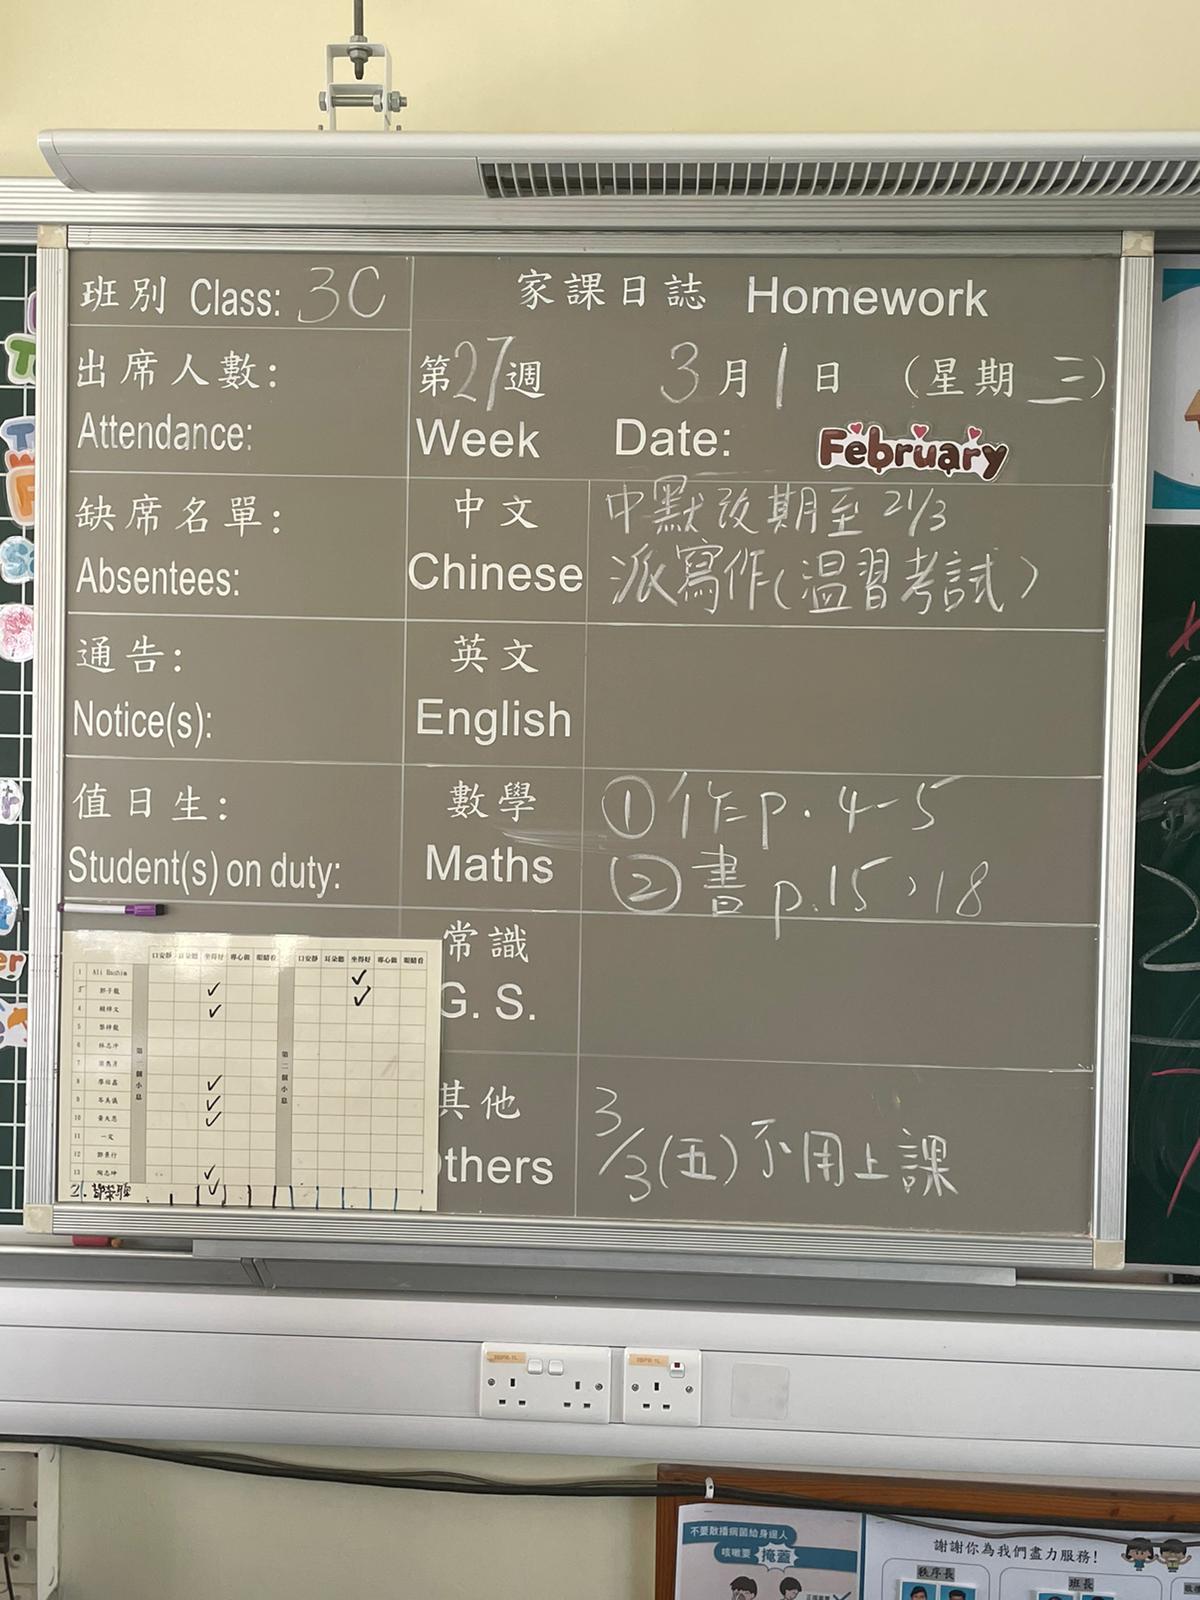 班別 Class: 3C
家課日誌 Homework
出席人數:
Attendance:
第27週 3月1日 (星期三)
Week Date: February
缺席名單:
Absentees:
中文
Chinese
中默改期至 21/3
派寫作(温習考試)
通告:
Notice(s):
英文
English
值日生:
Student(s) on duty:
數學
Maths
①作 p. 4-5
②書 p.15,18
常識
G. S.
其他
thers
3/3(五)不用上課
口安靜 耳朵聽 坐得好 專心做 眼睛看 口安靜 耳朵聽 坐得好 專心做 眼睛看
1 Ali Hashim
3
4
5
6
7
8
9
10
11
12
13
2.
第一個小息
第二個小息
不要散播病菌給身邊人
咳嗽要 掩蓋
謝謝你為我們盡力服務!
秩序長
班長